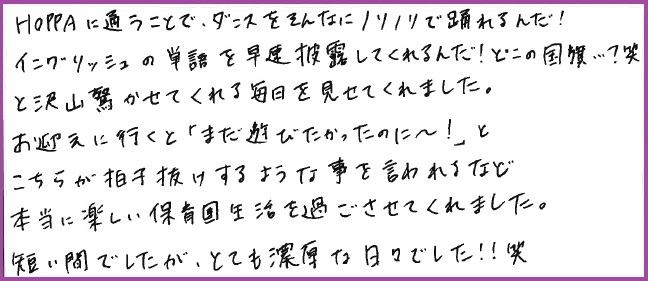 HOPPAに通うことで、ダンスをそんなにノリノリで踊れるんだ！
イングリッシュの単語を早速披露してくれるんだ！どこの国旗…？笑
と沢山驚かせてくれる毎日を見せてくれました。
お迎えに行くと「まだ遊びたかったのに〜！」と
こちらが拍子抜けするような事を言われるなど
本当に楽しい保育園生活を過ごさせてくれました。
短い間でしたが、とても濃厚な日々でした！！笑